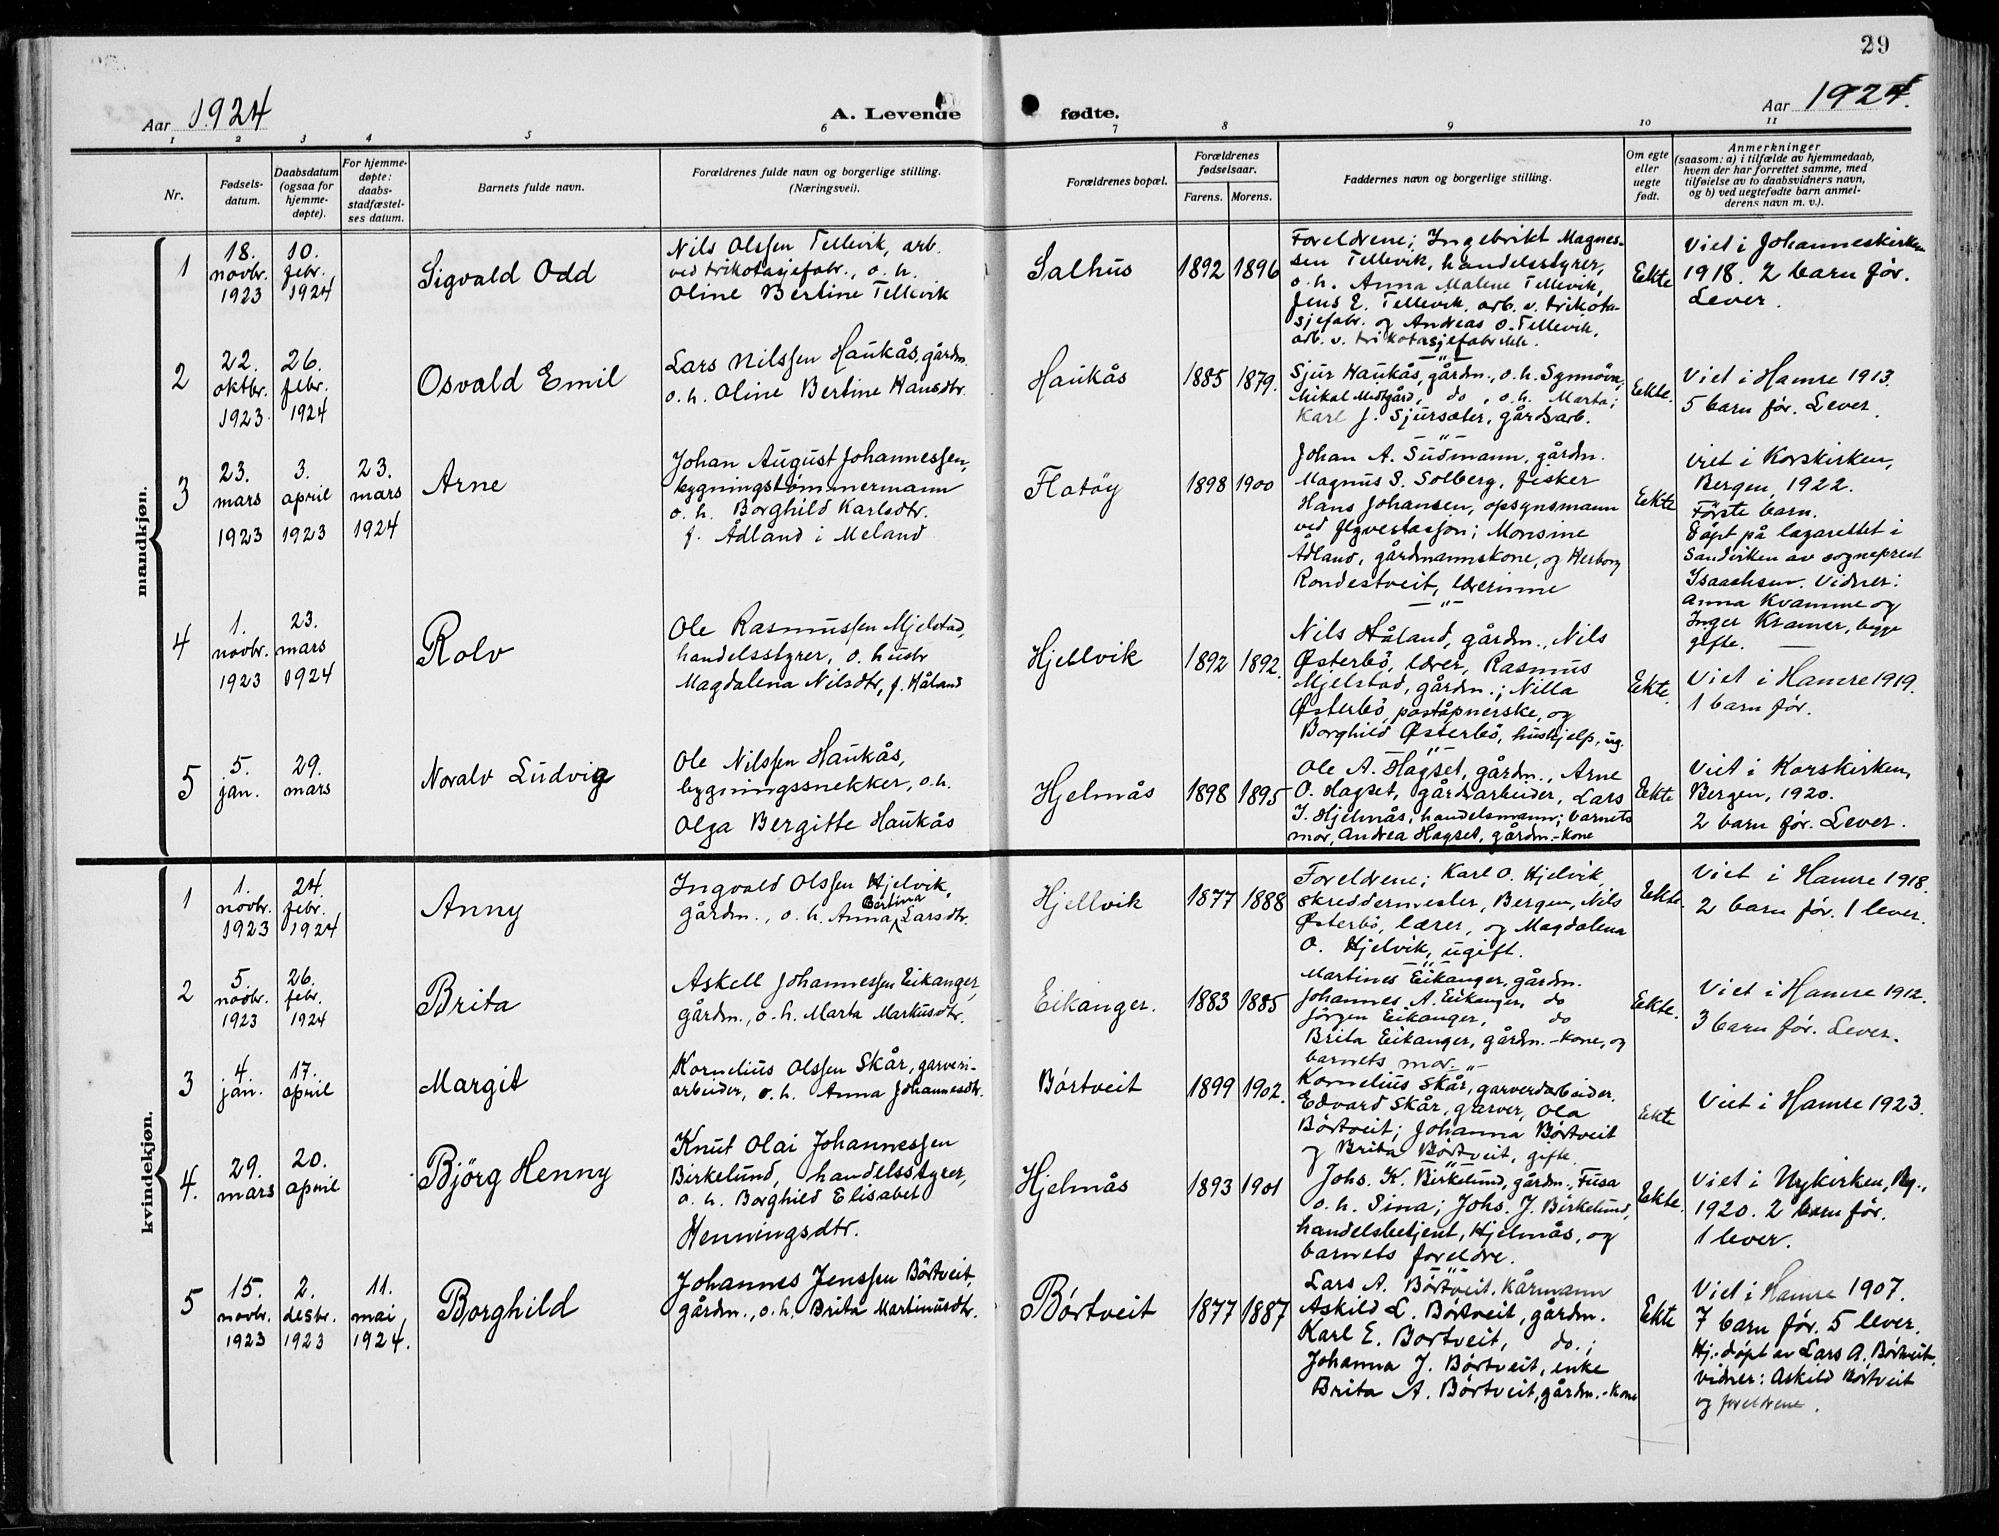 29
Aar 1924
A. Levende fødte.
Aar 1924.
1 2 3 4 5 6 7 8 9 10 11
Nr.
Fødsels-
datum.
Daabsdatum
(ogsaa for
hjemme-
døpte).
For hjemme-
døpte:
daabs-
stadfæstel-
ses datum.
Barnets fulde navn.
Forældrenes fulde navn og borgerlige stilling.
(Næringsvei).
Forældrenes bopæl.
Forældrenes
fødselsaar.
Farens. Morens.
Faddernes navn og borgerlige stilling.
Om egte
eller
uegte
født.
Anmerkninger
(saasom: a) i tilfælde av hjemmedaab,
hvem der har forrettet samme, med
tilføielse av to daabsvidners navn,
og b) ved uegtefødte barn anmel-
derens navn m. v.).
mandkjøn.
1
18.
novbr.
1923
10.
febr.
1924
Sigvald Odd
Nils Olssen Tellevik, arb.
ved trikotasjefabr., o. h.
Oline Bertine Tellevik
Salhus
1892 1896
Foreldrene; Ingebrikt Magnes-
sen Tellevik, handelsstyrer,
o. h. Anna Malene Tellevik,
Jens E. Tellevik, arb. v. trikota-
sjefabr. og Andreas O. Tellevik,
arb. v. trikotasjefabrikk.
Ekte
Viet i Johanneskirken
1918. 2 barn før.
Lever.
2
22.
oktbr.
1923
26.
febr.
1924
Osvald Emil
Lars Nilssen Haukås, gårdm.
o. h. Oline Bertine Hansdtr.
Haukås
1885 1879.
Sjur Haukås, gårdm., o. h. Synnøve,
Mikal Midtgård, do, o. h. Marta;
Karl J. Sjursæter, gårdsarb.
Ekte.
Viet i Hamre 1913.
5 barn før. Lever.
3
23.
mars
1923
3.
april
1923
23.
mars
1924
Arne
Johan August Johannessen,
bygningstømmermann
o. h. Borghild Karlsdtr.
f. Ådland i Meland
Flatøy
1898 1900
Johan A. Sudmann, gårdm.
Magnus S. Solberg, fisker
Hans Johansen, opsynsmann
ved flyvestasjon; Monsine
Ådland, gårdmannskone, og Herborg
Rondestveit, lærerinne
Ekte
Viet i Korskirken,
Bergen, 1922.
Første barn.
Døpt på lazarettet i
Sandviken av sogneprest
Isaachsen. Vidner:
Anna Kvamme og
Inger Kramer, begge
gifte.
4
1.
novbr.
1923
23.
mars
1924
Rolv
Ole Rasmussen Mjelstad,
handelsstyrer, o. hustr
Magdalena Nilsdtr, f. Håland
Hjellvik
1892 1892.
Nils Håland, gårdm., Nils
Østerbö, lærer, Rasmus
Mjelstad, gårdm.; Nilla
Østerbö, poståpnerske, og
Borghild Østerbö, hushjelp, ug.
Ekte.
Viet i Hamre 1919.
1 barn før.
5
5.
jan.
29.
mars
Noralv Ludvig
Ole Nilssen Haukås,
bygningssnekker, o. h.
Olga Bergitte Haukås
Hjelmås
1898 1895
Ole A. Hagset, gårdm., Arne
O. Hagset, gårdsarbeider, Lars
I. Hjelmås, handelsmann; barnets
mor, Andrea Hagset, gårdm.-kone
Ekte
Viet i Korskirken,
Bergen, 1920.
2 barn før. Lever.
kvindekjøn.
1
1.
novbr.
1923
24.
febr.
1924
Anny
Ingvald Olssen Hjelvik,
gårdm., o. h. Anna Bertina Larsdtr.
Hjellvik
1877 1888
Foreldrene; Karl O. Hjelvik,
skreddermester, Bergen, Nils
Østerbö, lærer, og Magdalena
O. Hjelvik, ugift.
Ekte.
Viet i Hamre 1918.
2 barn før. 1 lever.
2
5.
novbr.
1923
26.
febr.
1924
Brita
Askell Johannessen Eikanger,
gårdm., o. h. Marta Markusdtr.
Eikanger.
1883 1885
Martines Eikanger, gårdm.
Johannes A. Eikanger, do
Jørgen Eikanger, do
Brita Eikanger, gårdm.-kone, og
barnets mor.
Ekte.
Viet i Hamre 1912.
3 barn før. Lever.
3
4.
jan.
17.
april
Margit
Kornelius Olssen Skår, garveri-
arbeider, o. h. Anna Johannesdtr.
Børtveit
1899 1902.
Kornelius Skår, garveriarbeider.
Edvard Skår, garver, Ola
Børtveit; Johanna Børtveit
og Brita Børtveit, gifte.
Ekte
Viet i Hamre 1923.
4.
29.
mars
20.
april
Björg Henny
Knut Olai Johannessen
Birkelund, handelsstyrer,
o. h. Borghild Elisabet
Henningsdtr.
Hjelmås
1893 1901
Johs. K. Birkelund, gårdm., Fusa
o. h. Sina; Johs. J. Birkelund,
handelsbetjent, Hjelmås, og
barnets foreldre.
Ekte.
Viet i Nykirken, Bg.,
1920. 2 barn før.
1 lever.
5
15.
novbr.
1923
2.
desbr.
1923
11.
mai
1924.
Borghild
Johannes Jenssen Børtveit,
gårdm., o. h. Brita Martinusdtr.
Børtveit
1877 1887
Lars A. Børtveit, kårmann
Askild L. Børtveit, gårdm.
Karl E. Bortveit, do.;
Johanna J. Børtveit, enke
Brita A. Børtveit, gårdm.-kone
Ekte
Viet i Hamre 1907.
7 barn før. 5 lever.
Hj.-døpt av Lars A. Børtveit.
Vidner: Askild Børtveit
og foreldrene.